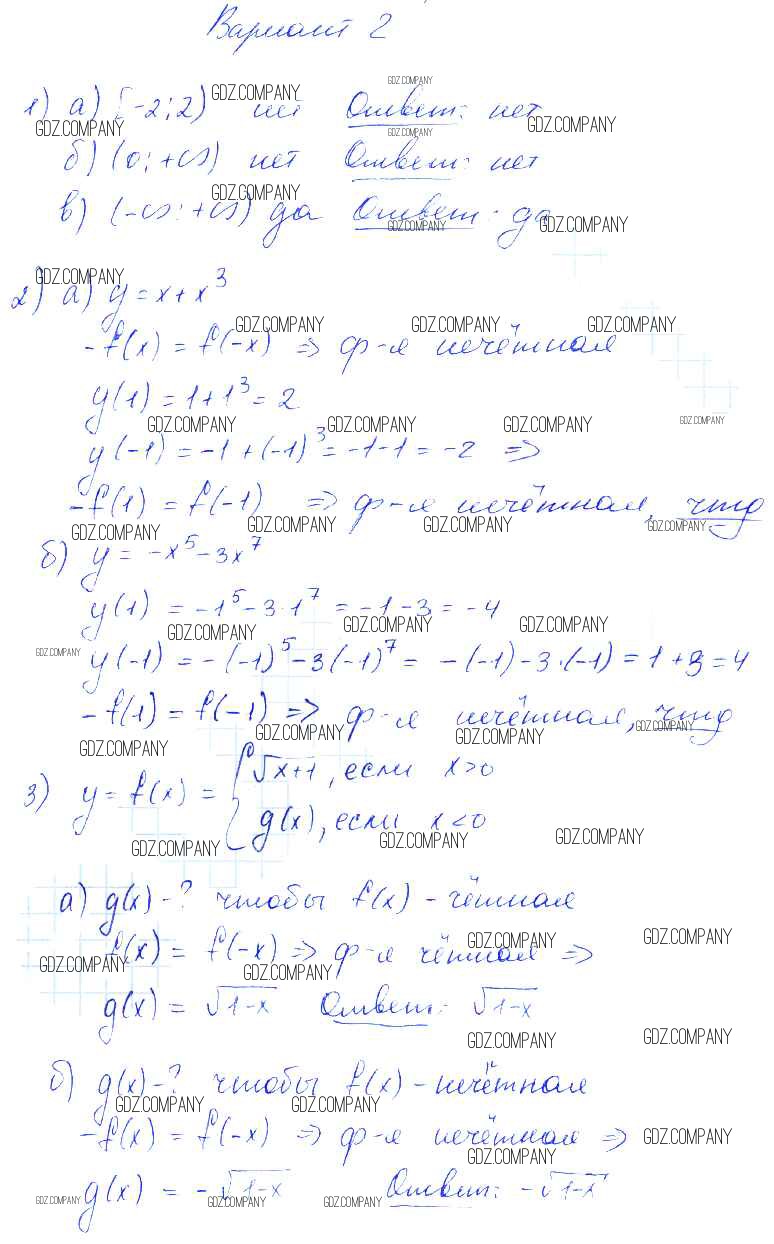 Вариант 2
1) а) [-2; 2) нет Ответ: нет
б) (0; +∞) нет Ответ: нет
в) (-∞; +∞) да Ответ: да
2) а) y = x + x³
-f(x) = f(-x) => ф-я нечётная
y(1) = 1 + 1³ = 2
y(-1) = -1 + (-1)³ = -1 - 1 = -2 =>
-f(1) = f(-1) => ф-я нечётная, чтд
б) y = -x⁵ - 3x⁷
y(1) = -1⁵ - 3·1⁷ = -1 - 3 = -4
y(-1) = -(-1)⁵ - 3(-1)⁷ = -(-1) - 3·(-1) = 1 + 3 = 4
-f(1) = f(-1) => ф-я нечётная, чтд
3) y = f(x) = { √x+1, если x > 0
g(x), если x < 0
а) g(x) - ? чтобы f(x) - чётная
f(x) = f(-x) => ф-я чётная =>
g(x) = √1-x Ответ: √1-x
б) g(x) - ? чтобы f(x) - нечётная
-f(x) = f(-x) => ф-я нечётная =>
g(x) = -√1-x Ответ: -√1-x
GDZ.COMPANY